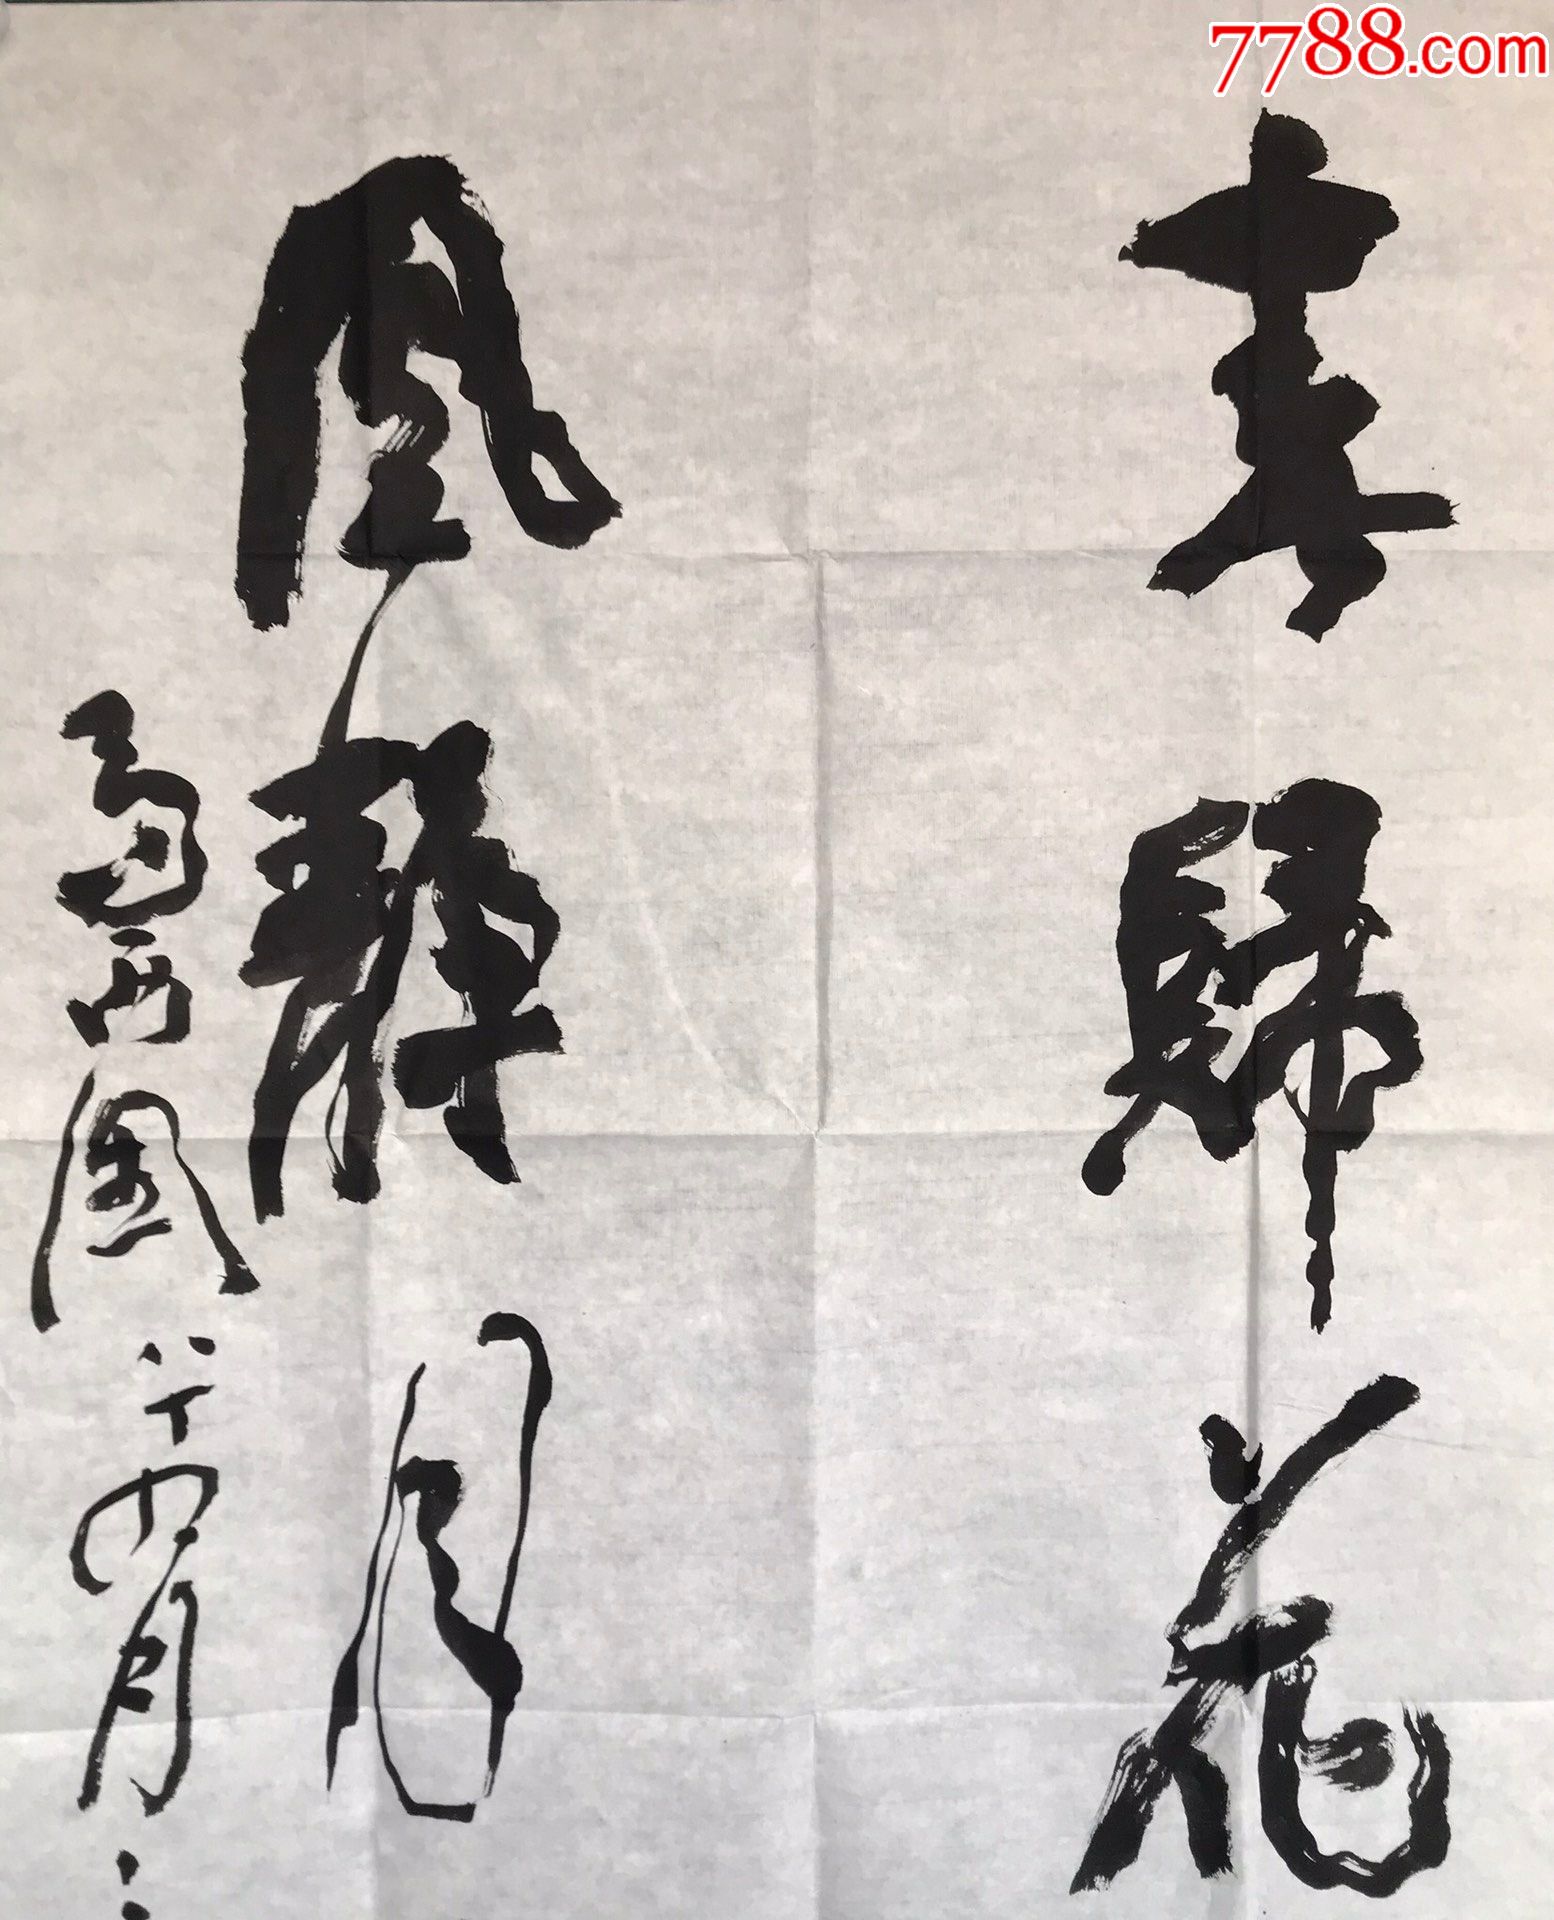 7788.com
春歸花
風靜月
西 四月